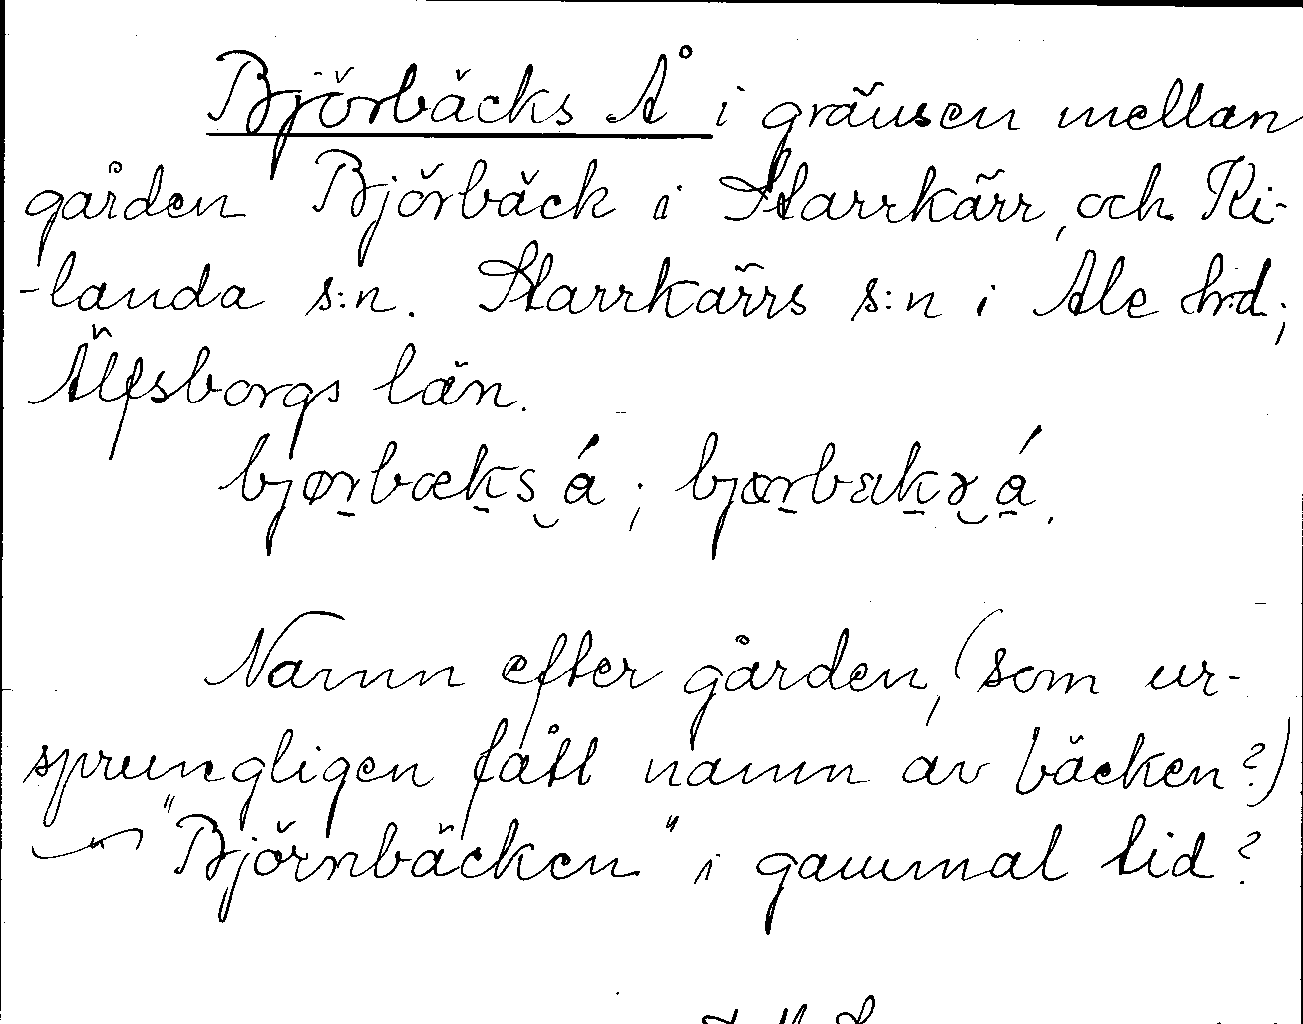 Björbäcks Å i gränsen mellan
gården Björbäck i Starrkärr, och Ki-
-landa s:n. Starrkärrs s:n i Ale hd;
Älfsborgs län.
bjørbæks á; bjørbæks á.
Namn efter gården, (som ur-
sprungligen fått namn av bäcken?)
"Björnbäcken" i gammal tid?